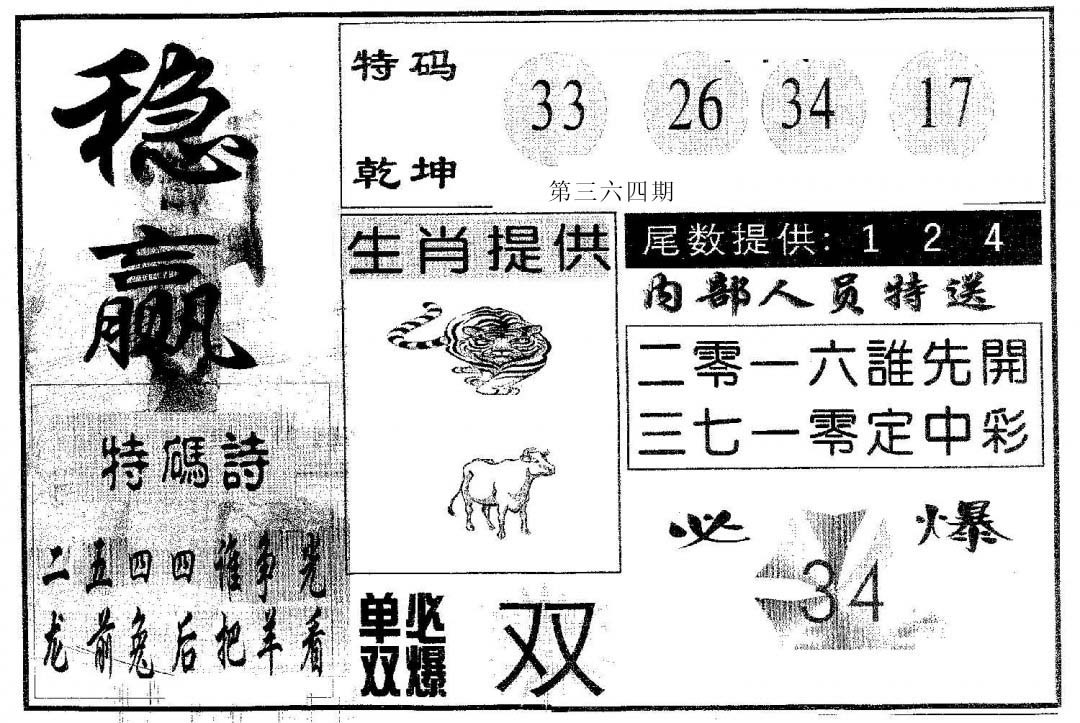 稳
赢
特码
乾坤
33 26 34 17
第三六四期
生肖提供
尾数提供: 1 2 4
内部人员特送
二零一六誰先開
三七一零定中彩
特碼詩
二五四四谁争光
龙前兔后把羊看
必爆
34
单双
必爆
双